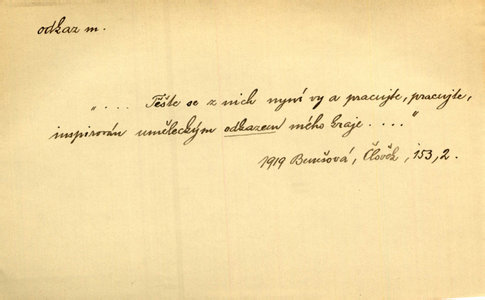 odkaz m.
".... Těšte se z nich nyní vy a pracujte, pracujte,
inspirován uměleckým odkazem mého kraje ...."
1919 Benešová, Člověk, 153, 2.